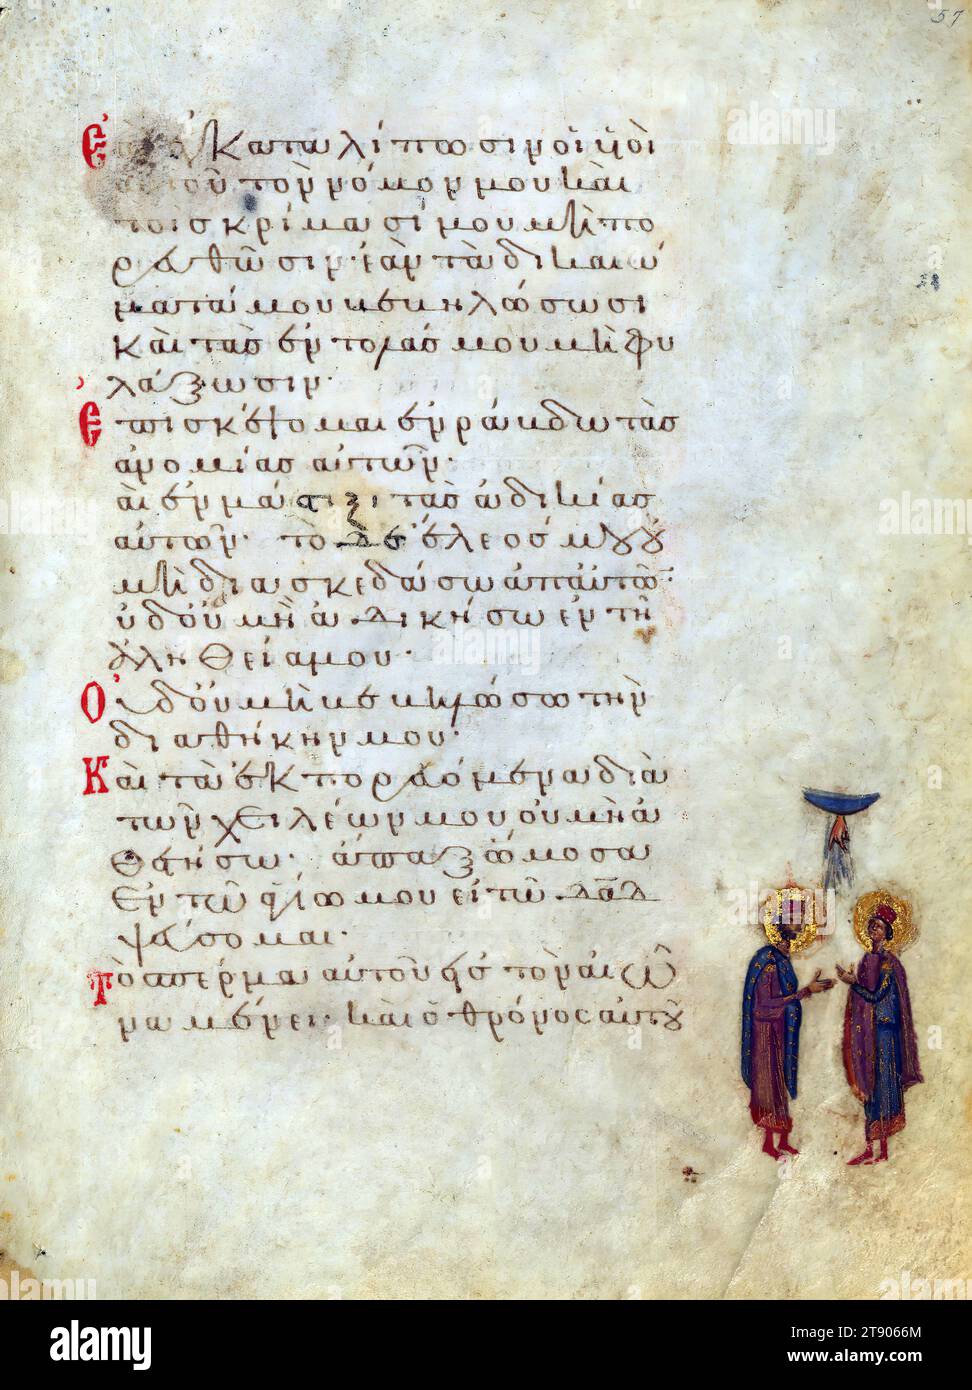 57
Ἐὰν καταλίπωσιν οἱ ὑιοὶ
αὐτοῦ τὸν νόμον μου καὶ
τοῖς κρίμασί μου μὴ πο
ρευθῶσιν· ἐὰν τὰ δικαιώ
ματά μου βεβηλώσωσι
καὶ τὰς ἐντολάς μου μὴ φυ
λάξωσιν·
Ἐπισκέψομαι ἐν ῥάβδω τὰς
ἀνομίας αὐτῶν·
καὶ ἐν μάστιξι τὰς ἀδικίας
αὐτῶν· τὸ δὲ ἔλεός μου οὐ
μὴ διασκεδάσω ἀπ' αὐτῶν·
οὐδ' οὐ μὴ ἀδικήσω ἐν τῆ
ἀληθεία μου·
Οὐδ' οὐ μὴ βεβηλώσω τὴν
διαθήκην μου·
Καὶ τὰ ἐκπορευόμενα διὰ
τῶν χειλέων μου οὐ μὴ ἀ
θετήσω· ἅπαξ ὤμοσα
ἐν τῶ ἁγίω μου εἰ τῶ δαδ
ψεύσομαι·
Τὸ σπέρμα αὐτοῦ εἰς τὸν αἰῶ
να μένει· καὶ ὁ θρόνος αὐτοῦ
alamy
Image ID: 2T9066M
www.alamy.com